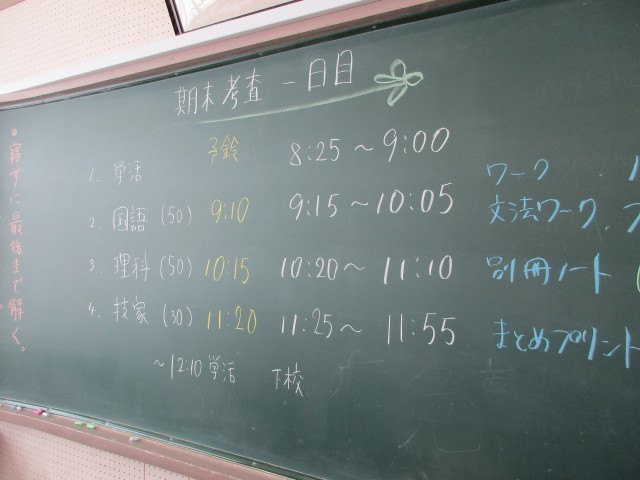 期末考査 一日目
予鈴
1. 学活 8:25 ~ 9:00
2. 国語 (50) 9:10 9:15 ~ 10:05
3. 理科 (50) 10:15 10:20 ~ 11:10
4. 技家 (30) 11:20 11:25 ~ 11:55
~12:10 学活 下校
ワーク
文法ワーク
別冊ノート
まとめプリント
・寝ずに最後まで解く。